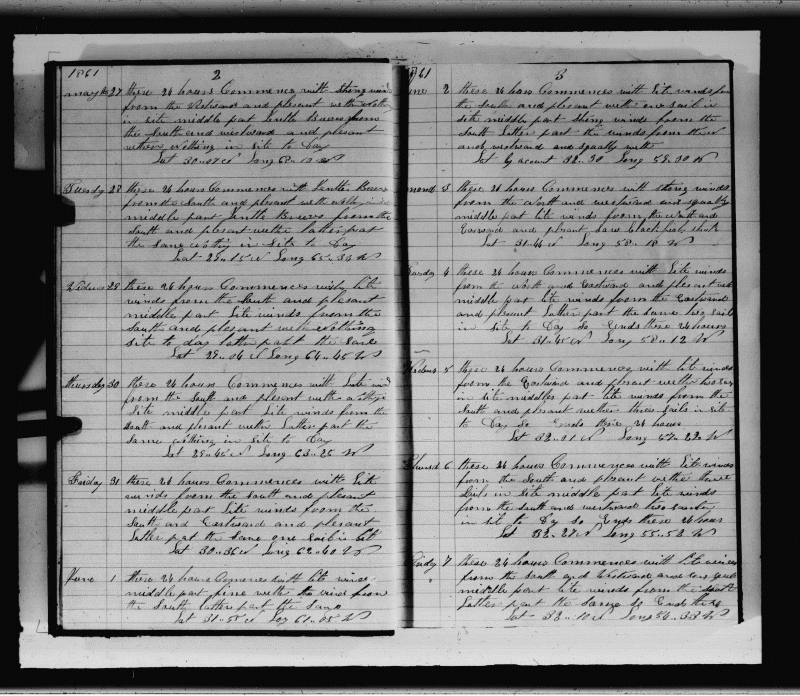 1861
2
may the 27 these 24 hours Commences with Strong winds
from the Westward and plesant wether Nothing
in site middle part Jentle Breeses from
the South and westward and plesant
wether nothing in Site to Day
Lat 30..07 N Long 68..12 W
Tuesdy 28 these 24 hours Commences with Jentle Breeses
from the South and plesant wether Nothing in site
middle part Jentle Breeses from the
South and plesant wether latter part
the Same nothing in Site to Day
Lat 29..15 N Long 65..33 W
Wednes 29 these 24 hours Commences with lite
winds from the South and plesant
middle part Lite winds from the
South and plesant wether nothing
site to day latter part the Same
Lat 29..04 N Long 64..45 W
thursday 30 these 24 hours Commences with Lite winds
from the South and plesant with nothing
Site middle part Lite winds from the
South and plesant wether Latter part the
Same nothing in Site to Day
Lat 29..45 N Long 63..25 W
Friday 31 these 24 hours Commences with Lite
winds from the South and plesant
middle part Lite winds from the
South and Eastward and plesant
Latter part the Same one Sail in Site
Lat 30..36 N Long 62..40 W
June 1 these 24 hours Comences with lite winds
middle part fine wether the wind from
the South latter part the Same
Lat 31..55 N Long 61..05 W
1861
3
June 2 these 24 hours Commences with Lite winds from
the South and plesant wether one sail in
site middle part Strong winds from the
South Latter part the winds from the N
and westward and squally wether
Lat by account 32..30 Long 59..30 W
mond 3 these 24 hours Commences with strong winds
from the North and westward and squally
middle part lite winds from the North and
Eastward and plesant saw blackfish
Lat 31..44 N Long 58..18 W
Tuesday 4 these 24 hours Commences with Lite winds
from the North and Eastward and plesant wether
middle part lite winds from the Eastward
and plesant Latter part the Same two Sails
in Site to Day So Ends these 24 hours
Lat 31..45 N Long 58..12 W
Wednes 5 these 24 hours Commences with lite winds
from the Eastward and plesant wether two Sails
in site middle part lite winds from the
South and plesant wether three Sails in Site
to Day So Ends these 24 hours
Lat 32..01 N Long 57..22 W
Thursd 6 these 24 hours Commences with Lite winds
from the South and plesant wether three
Sails in Site middle part lite winds
from the South and westward two sails
in sit to Dy So Ends these 24 hours
Lat 32..27 N Long 55..52 W
Fridy 7 these 24 hours Commences with lite winds
from the South and Westward and
middle part lite winds from the South
Latter part the Same So Ends these
Lat 33..10 N Long 54..33 W